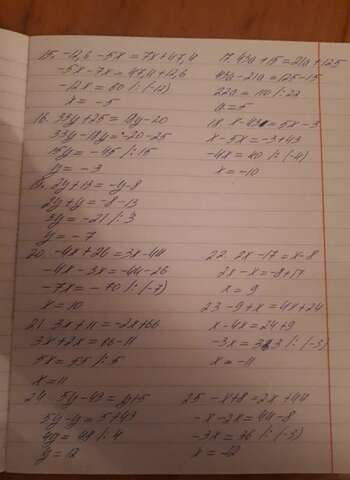 15. -12,6 - 5x = 7x + 47,4
-5x - 7x = 47,4 + 12,6
-12x = 60 /:(-12)
x = -5
17. 43a + 15 = 21a + 125
43a - 21a = 125 - 15
22a = 110 /:22
a = 5
16. 33y + 25 = 18y - 20
33y - 18y = -20 - 25
15y = -45 /:15
y = -3
18. x - 43 = 5x - 3
x - 5x = -3 + 43
-4x = 40 /:(-4)
x = -10
19. 2y + 13 = -y - 8
2y + y = -8 - 13
3y = -21 /:3
y = -7
20. -4x + 26 = 3x - 44
-4x - 3x = -44 - 26
-7x = -70 /:(-7)
x = 10
22. 2x - 17 = x - 8
2x - x = -8 + 17
x = 9
23 - 9 + x = 4x + 24
x - 4x = 24 + 9
-3x = 33 /:(-3)
x = -11
21. 3x + 11 = -2x + 66
3x + 2x = 66 - 11
5x = 55 /:5
x = 11
24. 5y - 43 = y + 5
5y - y = 5 + 43
4y = 48 /:4
y = 12
25 - x + 8 = 2x + 44
-x - 2x = 44 - 8
-3x = 36 /:(-3)
x = -12